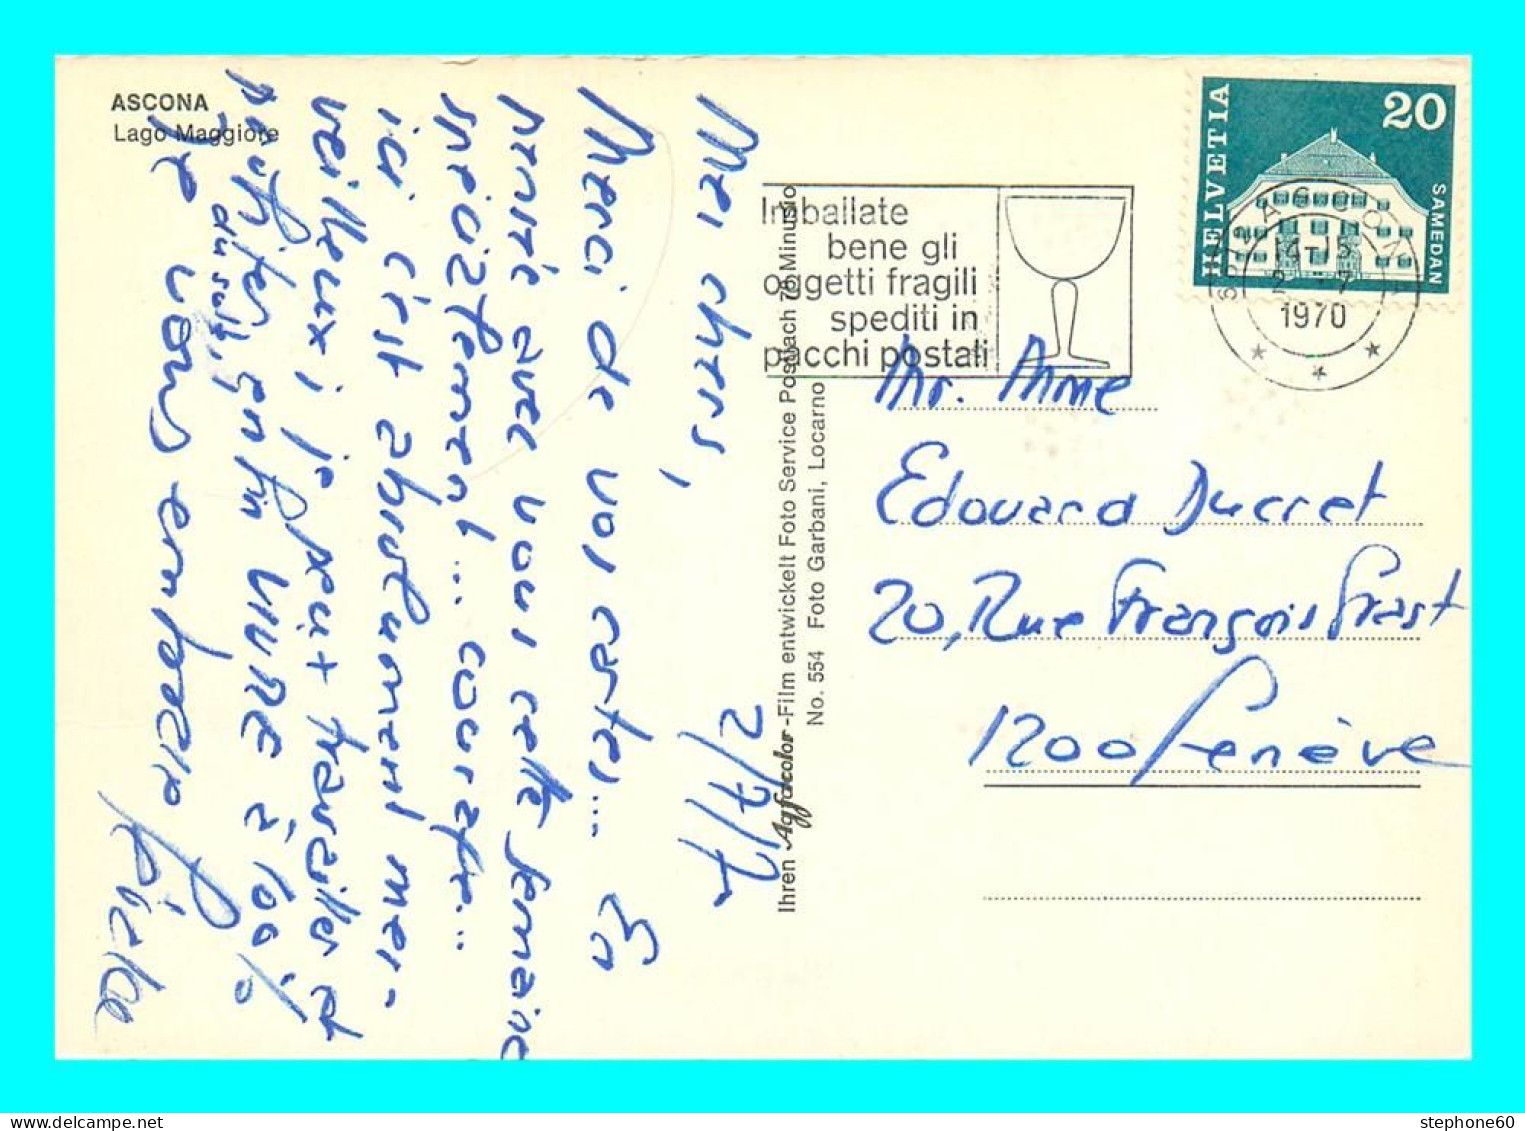 ASCONA
Lago Maggiore
Imballate
bene gli
oggetti fragili
spediti in
pacchi postali
HELVETIA
20
SAMEDAN
6612 ASCONA
14-15
2-7
1970
Ihren Agfacolor-Film entwickelt Foto Service Postfach 78 Minusio
No. 554 Foto Garbani, Locarno
2/7/70
Mes chers,
Merci de vos cartes... En
pensée avec vous cette semaine
spécialement... courage...
ici c'est absolument mer-
veilleux ! je peux travailler et
profiter
aussi, enfin VIVRE à 100%
Je vous embrasse
Mr. Mme
Edouard Ducret
20, Rue François Grast
1200 Genève
stephone60